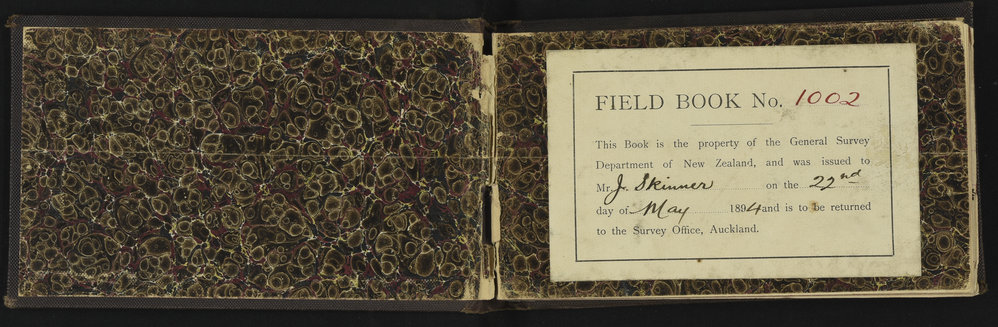 FIELD BOOK No. 1002
This Book is the property of the General Survey
Department of New Zealand, and was issued to
Mr. J. Skinner on the 22nd
day of May 1894 and is to be returned
to the Survey Office, Auckland.